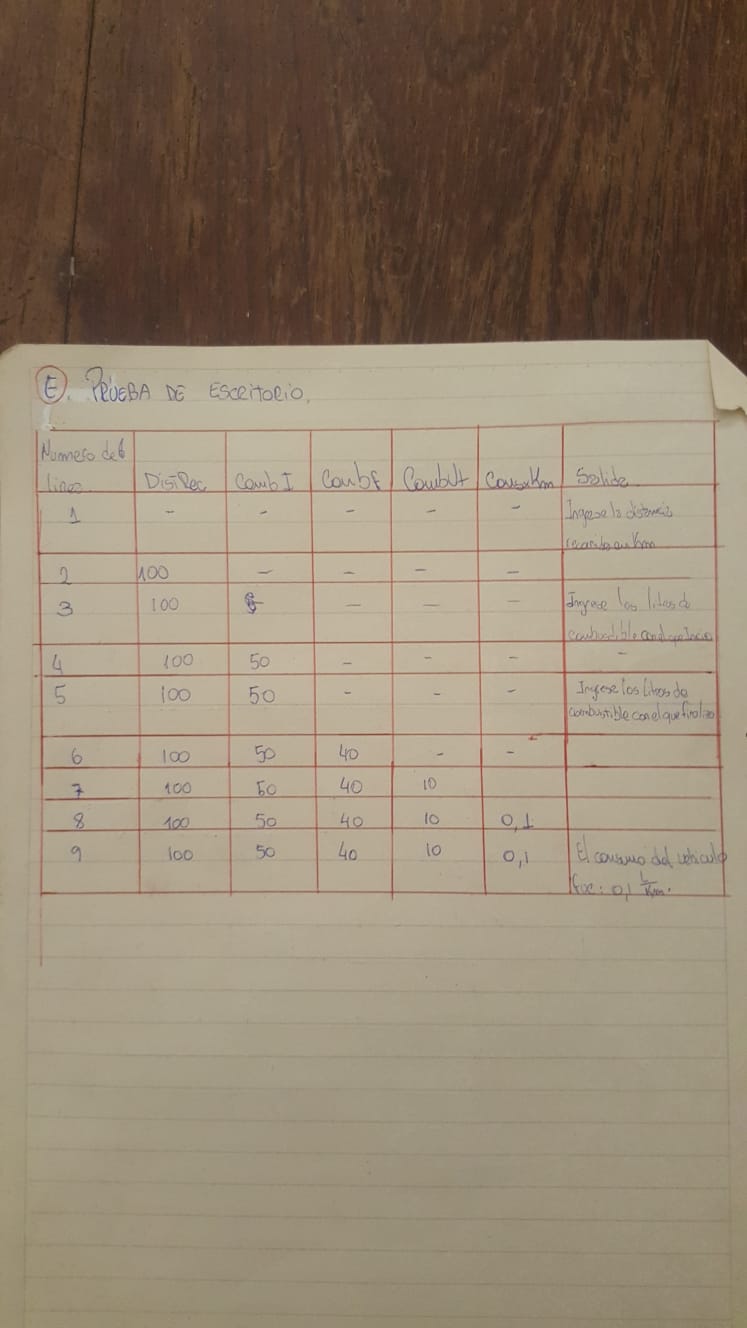 E. PRUEBA DE ESCRITORIO.
Numero de
linea DistRec CombI Combf CombUt ConsxKm Salida
1 - - - - - Ingrese la distancia
recorrida en Km
2 100 - - - -
3 100 - - - Ingrese los litros de
combustible con el que inicio
4 100 50 - - - -
5 100 50 - - - Ingrese los litros de
combustible con el que finalizo
6 100 50 40 - -
7 100 50 40 10
8 100 50 40 10 0,1
9 100 50 40 10 0,1 El consumo del vehiculo
fue: 0,1 L/Km.